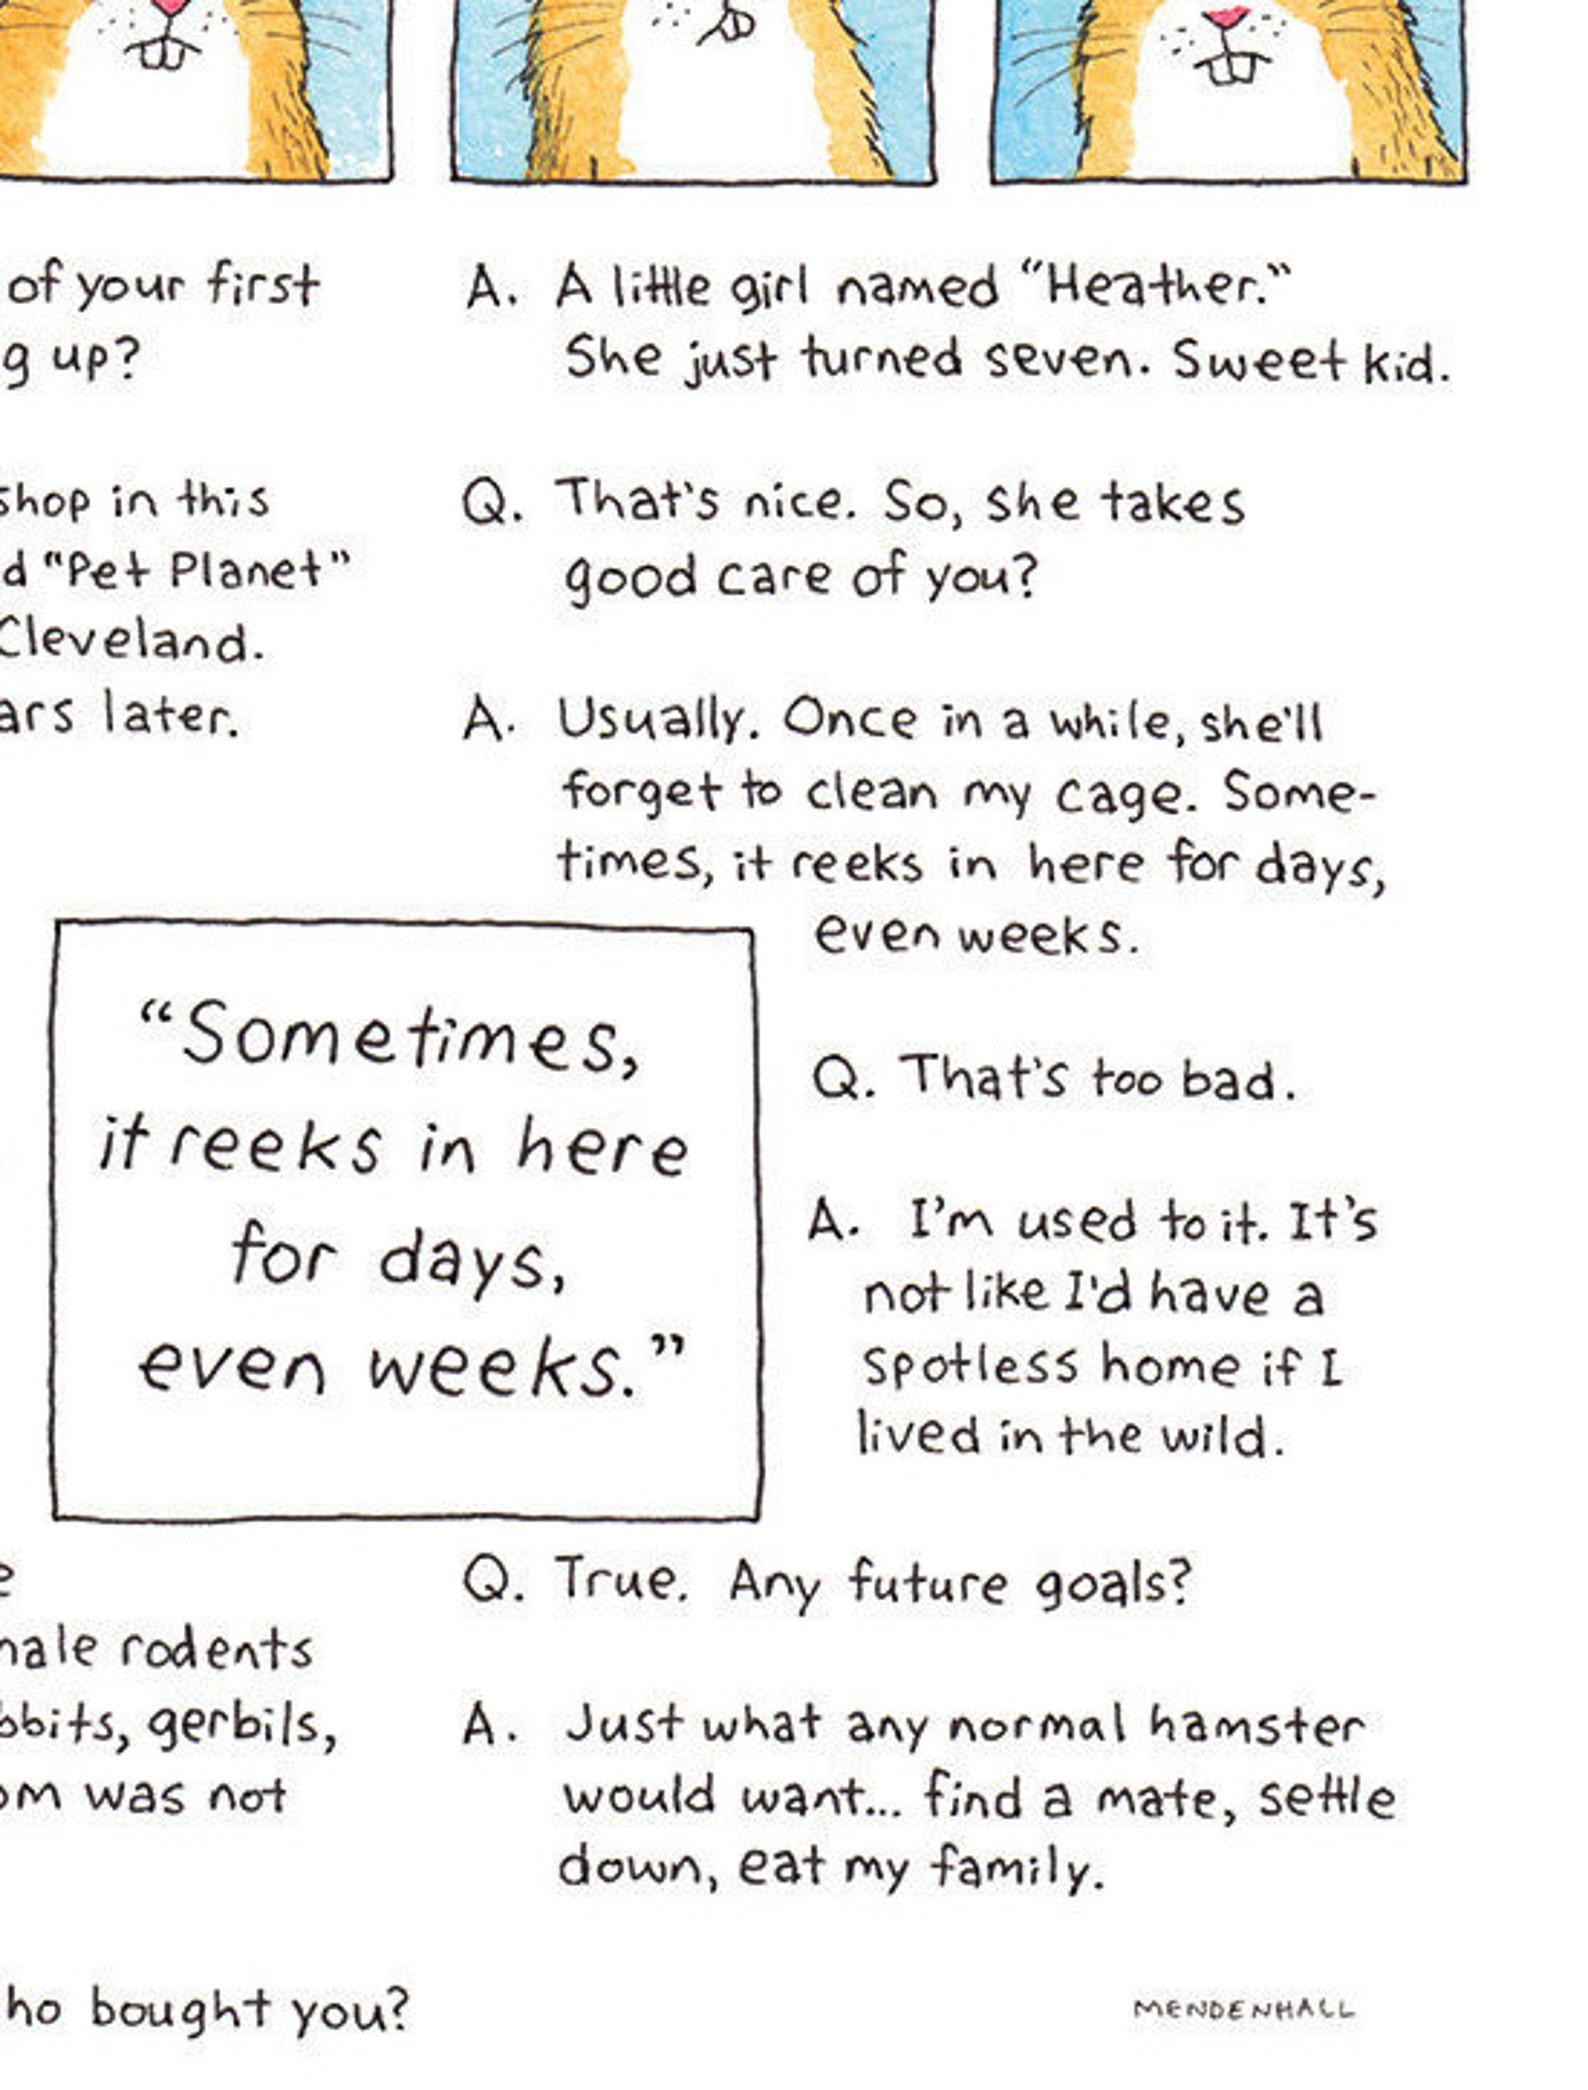 of your first
g up?
shop in this
d "Pet Planet"
Cleveland.
ars later.
"Sometimes,
it reeks in here
for days,
even weeks."
male rodents
bbits, gerbils,
om was not
ho bought you?
A. A little girl named "Heather."
She just turned seven. Sweet kid.
Q. That's nice. So, she takes
good care of you?
A. Usually. Once in a while, she'll
forget to clean my cage. Some-
times, it reeks in here for days,
even weeks.
Q. That's too bad.
A. I'm used to it. It's
not like I'd have a
spotless home if I
lived in the wild.
Q. True. Any future goals?
A. Just what any normal hamster
would want... find a mate, settle
down, eat my family.
MENDENHALL